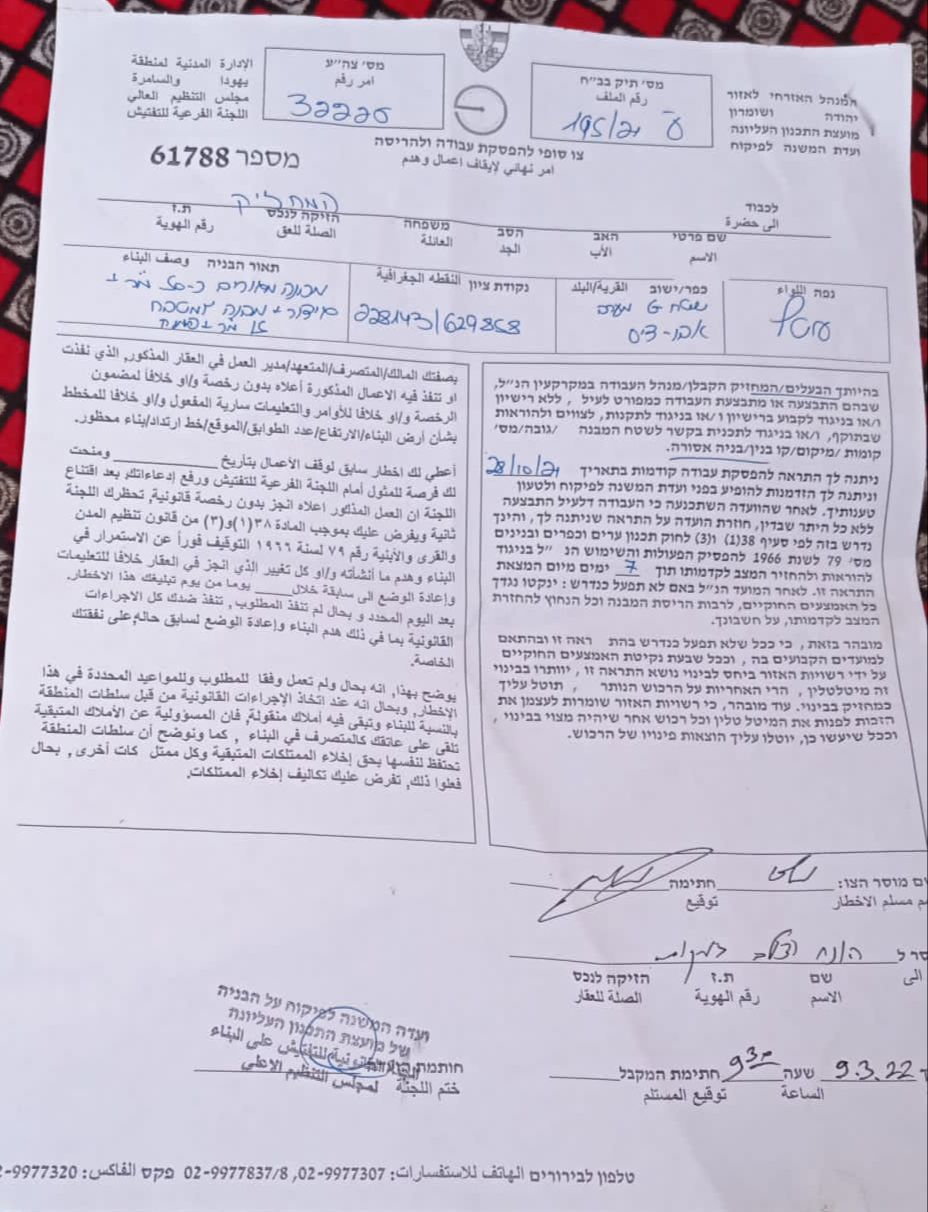 המנהל האזרחי לאזור
יהודה ושומרון
מועצת התכנון העליונה
ועדת המשנה לפיקוח
מס' תיק בב"ח
رقم الملف
195/21
מס' צה"ע
امر رقم
32226
الإدارة المدنية لمنطقة
يهودا والسامرة
مجلس التنظيم العالي
اللجنة الفرعية للتفتيش
צו סופי להפסקת עבודה ולהריסה
امر نهائي لإيقاف اعمال وهدم
מספר 61788
לכבוד
الى حضرة
המחזיק
שם פרטי האב הסב משפחה הזיקה לנכס ת.ז
الاسم الأب الجد العائلة الصلة للعقار رقم الهوية
נפה اللواء
כפר/ישוב القرية/البلد
אבו-דיס
נקודת ציון النقطه الجغرافية
228143/629858
תאור הבניה وصف البناء
בהיותך הבעלים/המחזיק הקבלן/מנהל העבודה במקרקעין הנ"ל,
שבהם התבצעה או מתבצעת העבודה כמפורט לעיל, ללא רישיון
ו/או בניגוד לקבוע ברישיון ו/או בניגוד לתקנות, לצווים ולהוראות
שבתוקף, ו/או בניגוד לתכנית בקשר לשטח המבנה /גובה/מס'
קומות /מיקום/קו בנין/בניה אסורה.
ניתנה לך התראה להפסקת עבודה קודמות בתאריך 28/10/21
וניתנה לך הזדמנות להופיע בפני ועדת המשנה לפיקוח ולטעון
טענותיך. לאחר שהוועדה השתכנעה כי העבודה דלעיל התבצעה
ללא כל היתר שבדין, חוזרת הועדה על התראה שניתנה לך, והינך
נדרש בזה לפי סעיף 38(1) ו(3) לחוק תכנון ערים וכפרים ובנינים
מס' 79 לשנת 1966 להפסיק הפעולות והשימוש הנ"ל בניגוד
להוראות ולהחזיר המצב לקדמותו תוך 7 ימים מיום המצאת
התראה זו. לאחר המועד הנ"ל באם לא תפעל כנדרש: ינקטו נגדך
כל האמצעים החוקיים, לרבות הריסת המבנה וכל הנחוץ להחזרת
המצב לקדמותו, על חשבונך.
מובהר בזאת, כי ככל שלא תפעל כנדרש בהת ראה זו ובהתאם
למועדים הקבועים בה, וככל שבעת נקיטת האמצעים החוקיים
על ידי רשויות האזור ביחס לבינוי נושא התראה זו, יוותרו בבינוי
זה מיטלטלין, הרי האחריות על הרכוש הנותר, תוטל עליך
כמחזיק בבינוי. עוד מובהר, כי רשויות האזור שומרות לעצמן את
הזכות לפנות את המיטל טלין וכל רכוש אחר שיהיה מצוי בבינוי,
וככל שיעשו כן, יוטלו עליך הוצאות פינויו של הרכוש.
بصفتك المالك/المتصرف/المتعهد/مدير العمل في العقار المذكور, الذي نفذت
او تنفذ فيه الاعمال المذكورة أعلاه بدون رخصة و/او خلافا لمضمون
الرخصة و/او خلافا للأوامر والتعليمات سارية المفعول و/او خلافا للمخطط
بشأن أرض البناء/الارتفاع/عدد الطوابق/الموقع/خط ارتداد/بناء محظور.
أعطي لك اخطار سابق لوقف الأعمال بتاريخ ومنحت
لك فرصة للمثول أمام اللجنة الفرعية للتفتيش ورفع إدعاءاتك بعد اقتناع
اللجنة ان العمل المذكور اعلاه انجز بدون رخصة قانونية, تحظرك اللجنة
ثانية ويفرض عليك بموجب المادة ٣٨(١)و(٣) من قانون تنظيم المدن
والقرى والأبنية رقم ٧٩ لسنة ١٩٦٦ التوقيف فوراً عن الاستمرار في
البناء وهدم ما أنشأته و/او كل تغيير الذي انجز في العقار خلافا للتعليمات
وإعادة الوضع الى سابقة خلال يوما من يوم تبليغك هذا الاخطار.
بعد اليوم المحدد و بحال لم تنفذ المطلوب, تنفذ ضدك كل الاجراءات
القانونية بما في ذلك هدم البناء وإعادة الوضع لسابق حاله, على نفقتك
الخاصة.
يوضح بهذا, انه بحال ولم تعمل وفقا للمطلوب وللمواعيد المحددة في هذا
الإخطار, وبحال انه عند اتخاذ الإجراءات القانونية من قبل سلطات المنطقة
بالنسبة للبناء وتبقى فيه أملاك منقولة, فان المسؤولية عن الأملاك المتبقية
تلقى على عاتقك كالمتصرف في البناء, كما ونوضح أن سلطات المنطقة
تحتفظ لنفسها بحق إخلاء الممتلكات المتبقية وكل ممتل كات أخرى, بحال
فعلوا ذلك, تفرض عليك تكاليف إخلاء الممتلكات.
מוסר הצו: חתימה
مسلم الاخطار توقيع
הונח
שם ת.ז הזיקה לנכס
الى الاسم رقم الهوية الصلة للعقار
9.3.22 שעה 930 חתימת המקבל
الساعة توقيع المستلم
ועדת המשנה לפיקוח על הבניה
של מועצת התכנון העליונה
للتفتيش على البناء
لمجلس التنظيم الاعلى
חותמת הועדה
ختم اللجنة
טלפון לבירורים الهاتف للاستفسارات: 02-9977307, 02-9977837/8 פקס الفاكس: 02-9977320